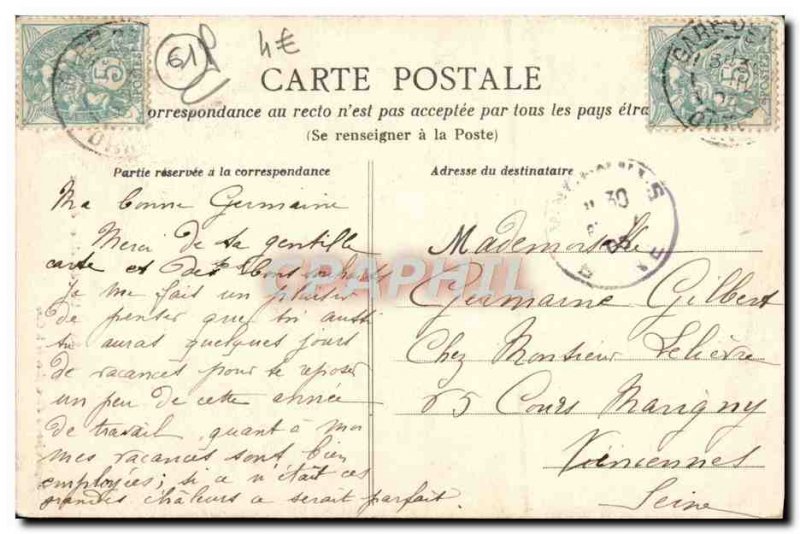 61
4€
CARTE POSTALE
orrespondance au recto n'est pas acceptée par tous les pays étra
(Se renseigner à la Poste)
Partie réservée à la correspondance
Ma bonne Germaine
Merci de ta gentille
carte et des bons souhaits
Je me fait un plaisir
de penser que toi aussi
tu auras quelques jours
de vacances pour te reposer
un peu de cette année
de travail, quant a moi
mes vacances sont bien
employées; si a n'était ces
grandes chaleurs a serait parfait.
Adresse du destinataire
Mademoiselle
Germaine Gilbert
Chez Monsieur Lelièvre
65 Cours Marigny
Vincennes
Seine
CPAPHIL
5c
POSTES
5c
POSTES
GARE DE
30